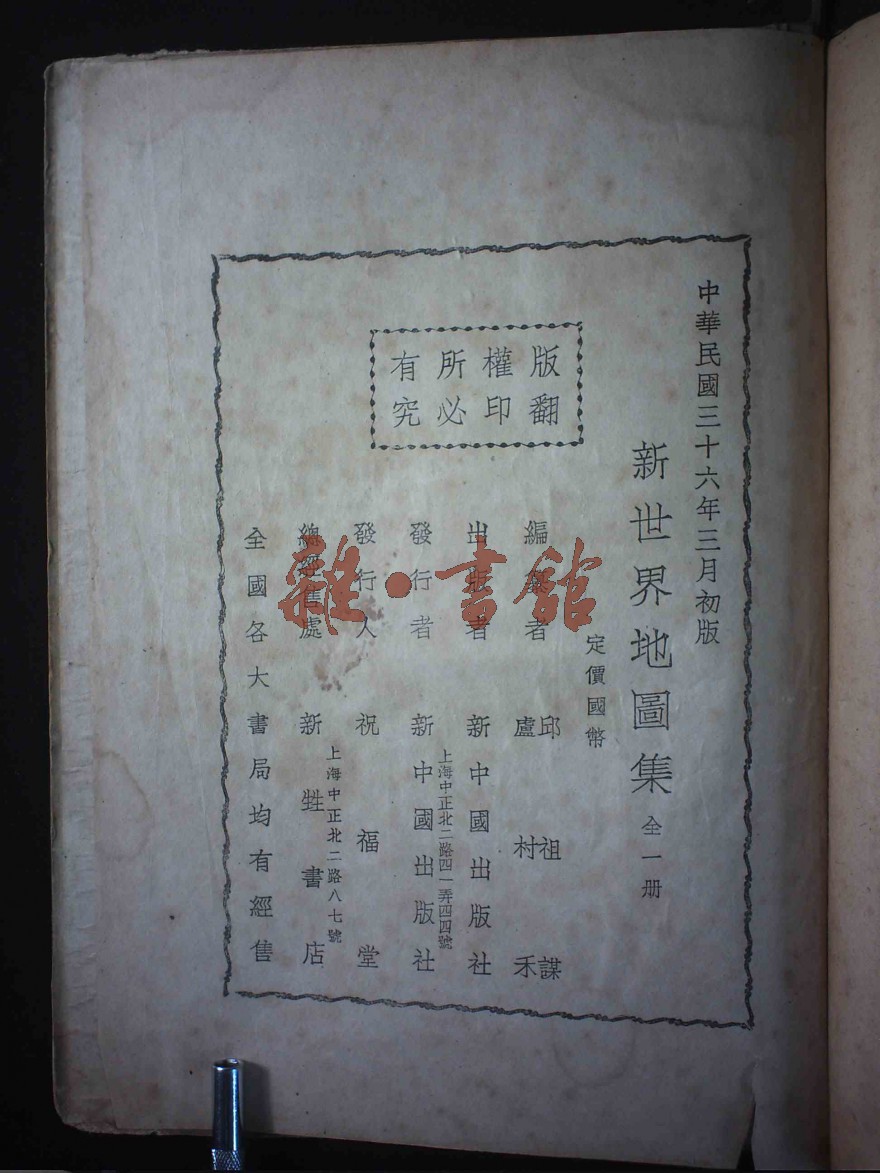 中華民國三十六年三月初版
新世界地圖集 全一册
定價國幣
版權所有
翻印必究
編纂者 邱祖謀
盧村禾
出版者 新中國出版社
發行者 新中國出版社
上海中正北二路四一弄四四號
發行人 祝福堂
總經售處 新甡書店
上海中正北二路八七號
全國各大書局均有經售
雜·書館